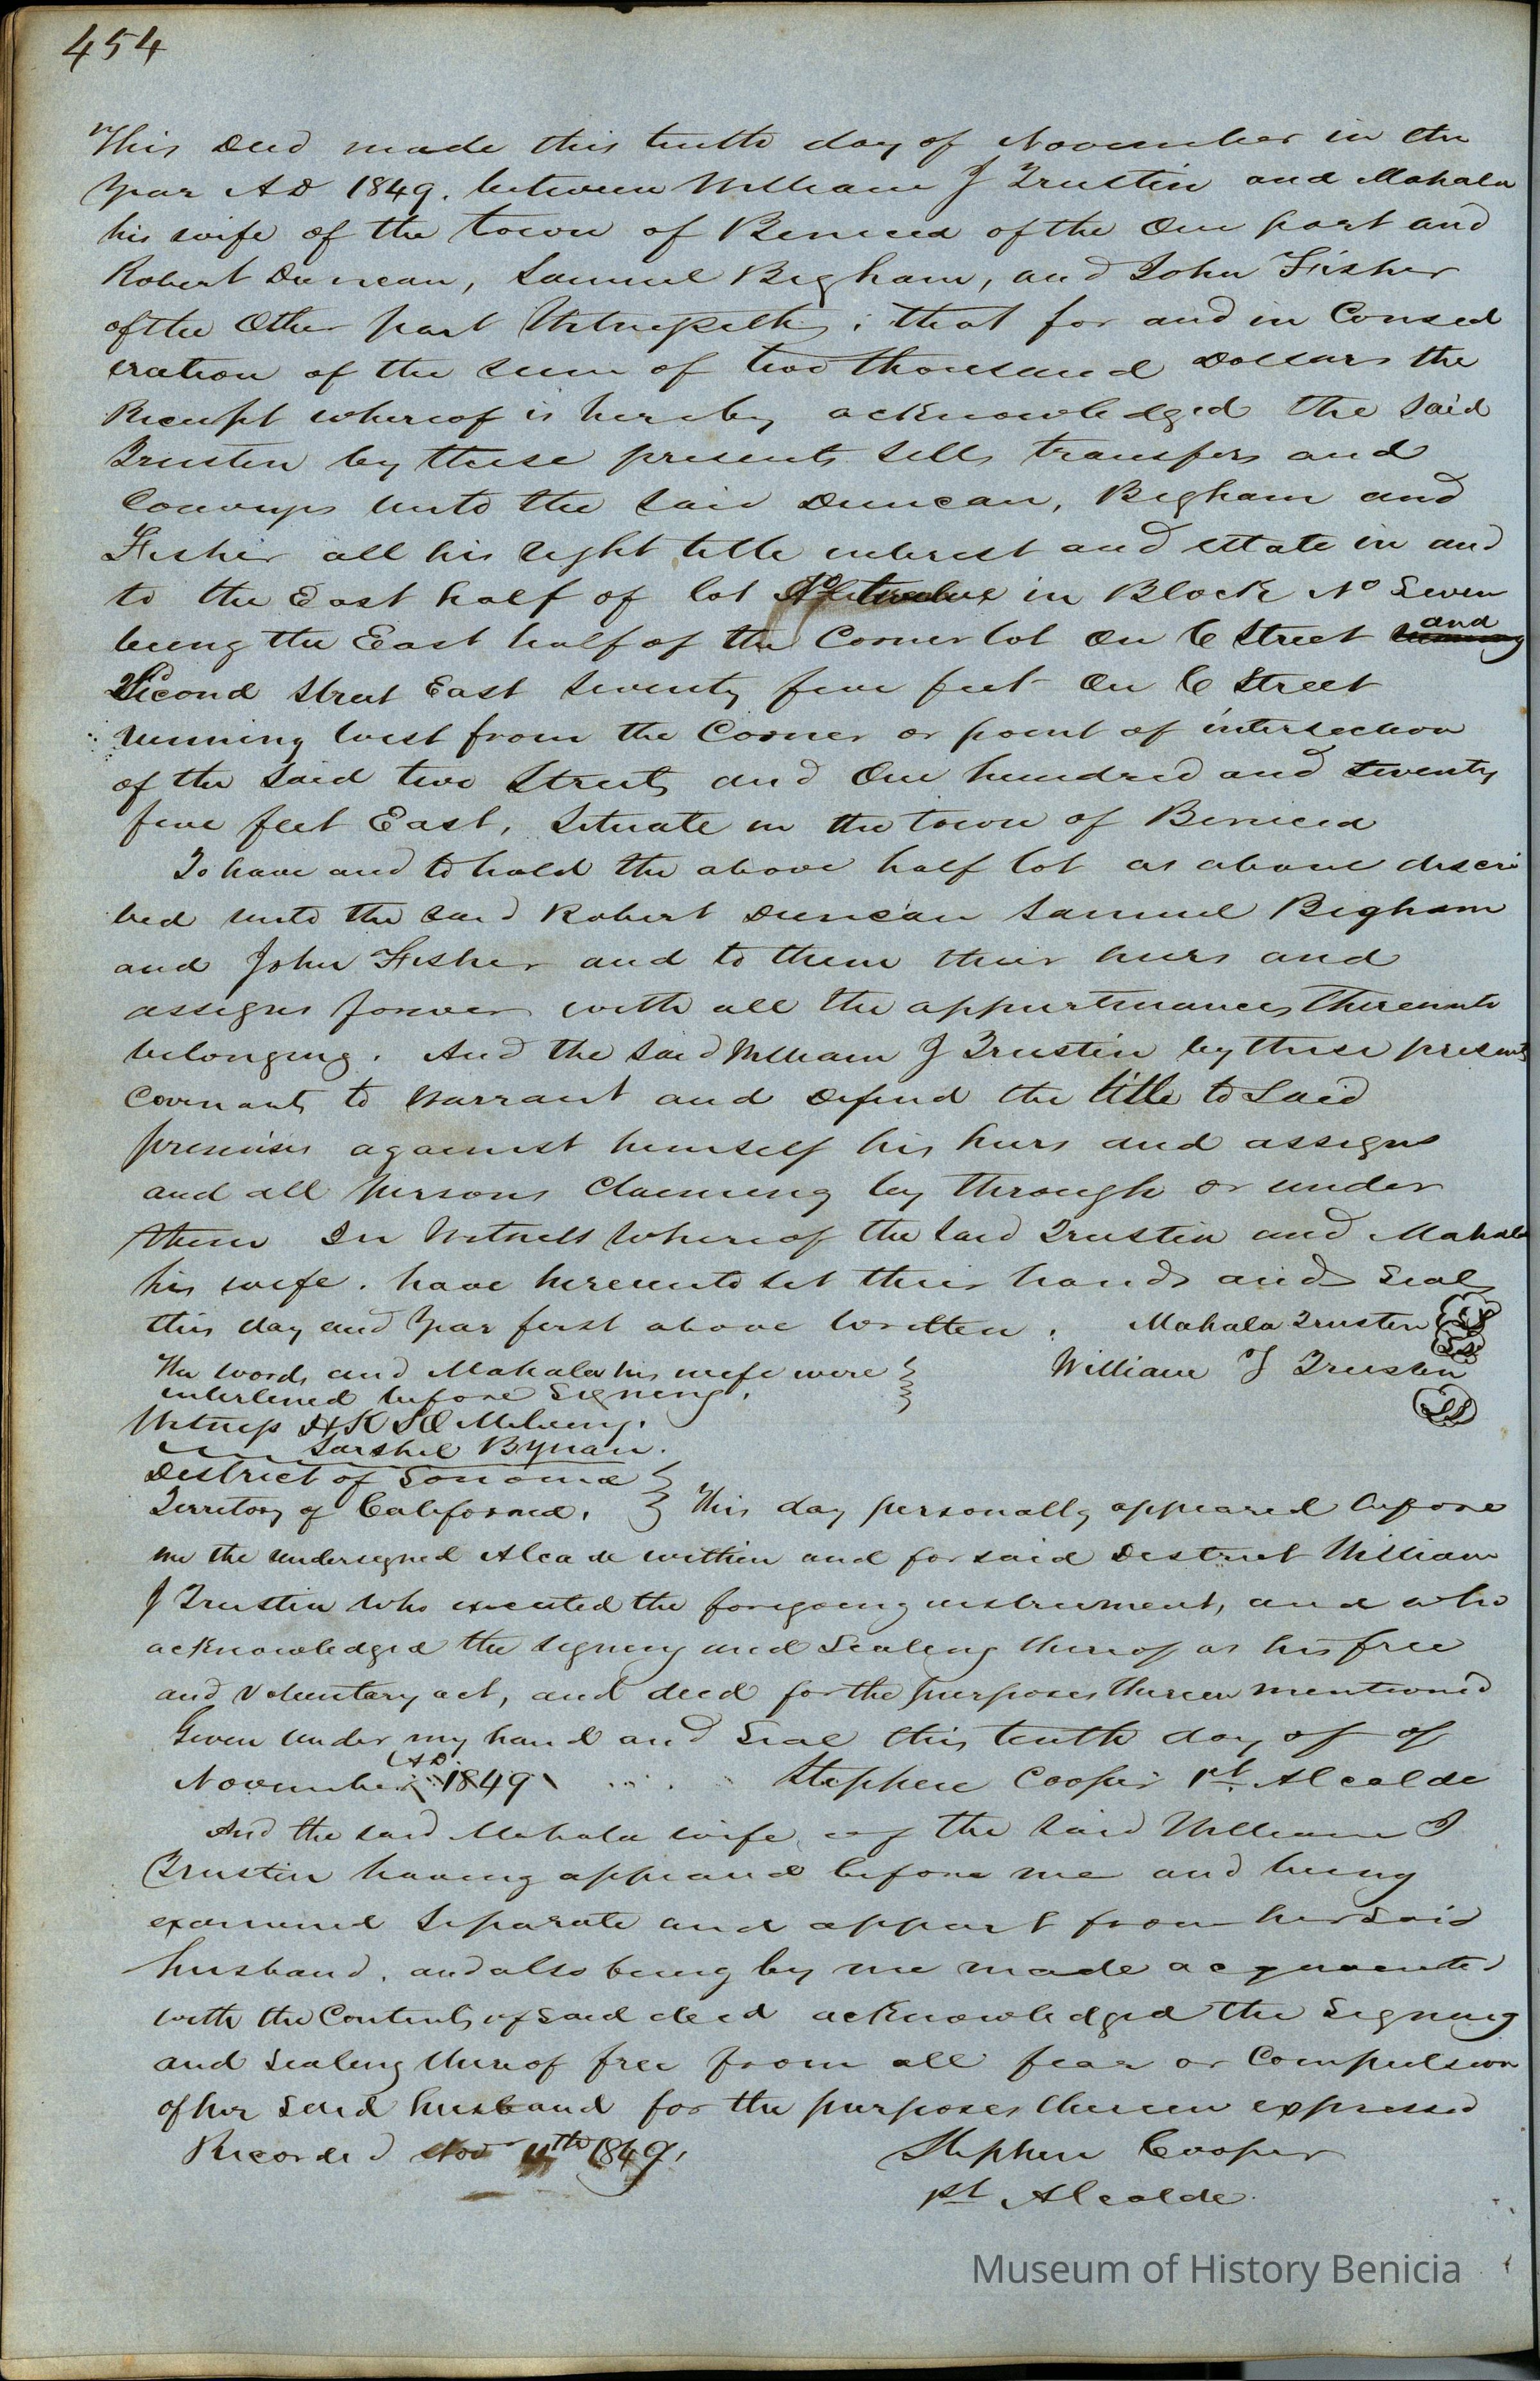 454
This Deed made this tenth day of November in the
year AD 1849. between William J Trustin and Mahala
his wife of the town of Benicia of the One part and
Robert Duncan, Samuel Bigham, and John Fisher
of the Other part Witnesseth; that for and in Consid
eration of the sum of two thousand Dollars the
Receipt whereof is hereby acknowledged the said
Trustin by these presents sells transfers and
Conveys unto the said Duncan, Bigham and
Fisher all his right title interest and estate in and
to the East half of lot No twelve in Block No Seven
being the East half of the Corner lot On C Street and
Second Street East seventy five feet On C Street
running West from the Corner or point of intersection
of the said two Streets and One hundred and twenty
five feet East, Situate in the town of Benicia
To have and to hold the above half lot as above descri
bed unto the said Robert Duncan Samuel Bigham
and John Fisher and to them their heirs and
assigns forever with all the appurtenances thereunto
belonging. And the said William J Trustin by these presents
Covenants to Warrant and Defend the title to Said
premises against himself his heirs and assigns
and all persons Claiming by through or under
them In Witness Whereof the said Trustin and Mahala
his wife. have hereunto set their hands and Seals
this day and year first above written. Mahala Trustin
The words and Mahala his wife were William J Trustin
interlined before Signing.
Witness
District of Sonoma
Territory of California. This day personally appeared before
me the undersigned Alcade within and for said District William
J Trustin who executed the foregoing instrument, and who
acknowledged the signing and Sealing thereof as his free
and voluntary act, and deed for the purposes therein mentioned
Given under my hand and Seal this tenth day of of
November AD. 1849 Stephen Cooper 1st Alcalde
And the said Mahala wife of the said William J
Trustin having appeared before me and being
examined Separate and appart from her said
husband. and also being by me made acquainted
with the Contents of said deed acknowledged the Signing
and Sealing thereof free from all fear or Compulsion
of her said husband for the purposes therein expressed
Recorded Nov 11th 1849. Stephen Cooper
1st Alcalde.
Museum of History Benicia